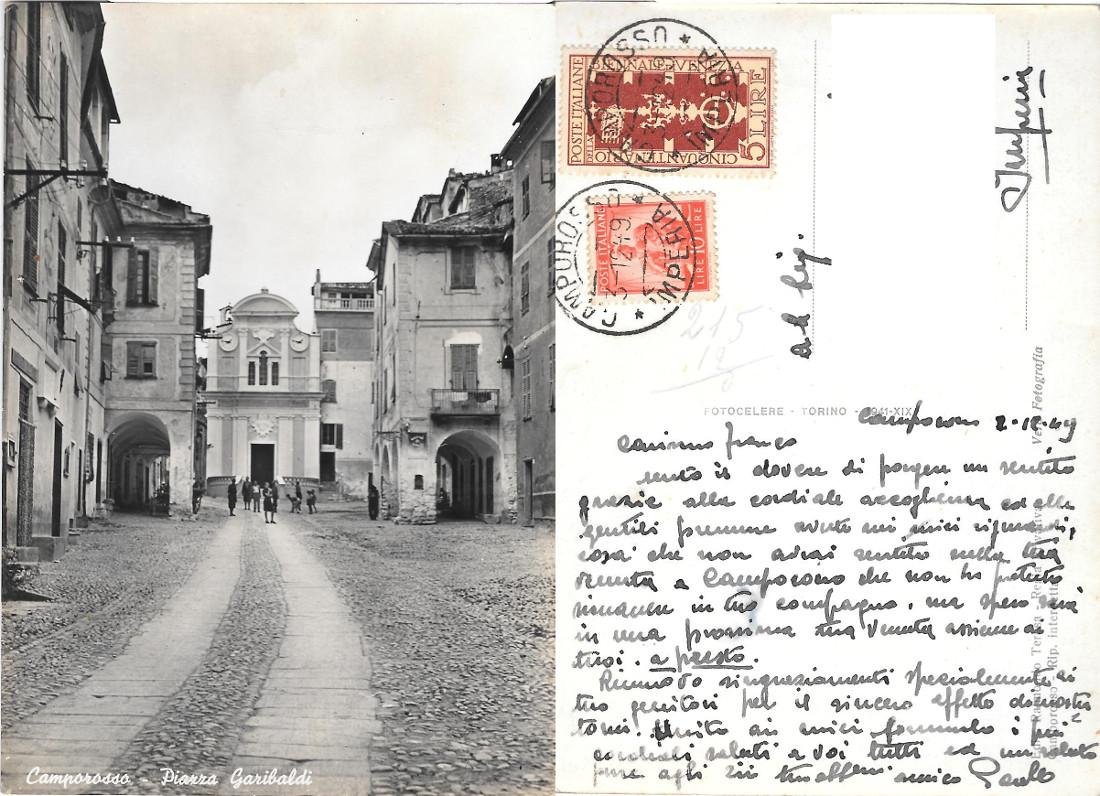 Camporosso - Piazza Garibaldi
POSTE ITALIANE
BIENNALE VENEZIA
CINQUANTENARIO
5 LIRE
CAMPOROSSO * IMPERIA *
POSTE ITALIANE
LIRE 10 LIRE
CAMPOROSSO * IMPERIA *
3-12-49
Imperia
215
12
FOTOCELERE - TORINO - 1941-XIX
Vera Fotografia
Camporosso 2-12-49
Carissimo Franco
sento il dovere di porgere un sentito
grazie alla cordiale accoglienza ed alle
gentili premure avute nei miei riguardi,
cosa che non avrai sentito nella tua
venuta a Camporosso che non ho potuto
rimanere in tua compagnia, ma spero sarà
in una prossima tua venuta assieme ai
tuoi. a presto.
Rinnovo ringraziamenti specialmente ai
tuoi genitori per il sincero affetto dimostra
tomi. Unito ai miei formulo i più
cordiali saluti a voi tutti ed un saluto
pure agli zii tuo amico